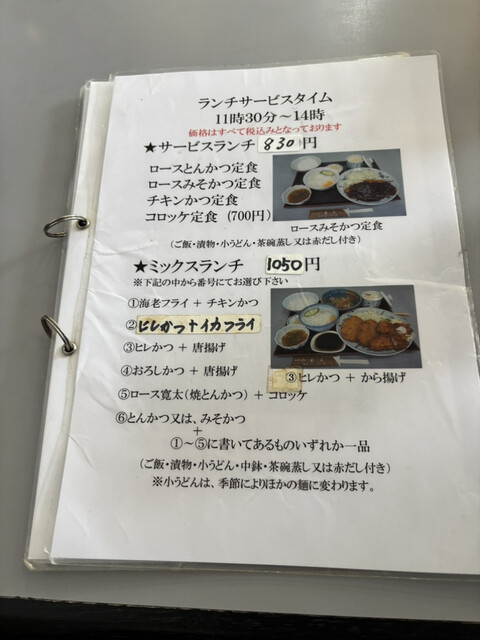 ランチサービスタイム
11時30分～14時
価格はすべて税込みとなっております
★サービスランチ 830円
ロースとんかつ定食
ロースみそかつ定食
チキンかつ定食
コロッケ定食 (700円)
ロースみそかつ定食
(ご飯・漬物・小うどん・茶碗蒸し又は赤だし付き)
★ミックスランチ 1050円
※下記の中から番号にてお選び下さい
①海老フライ + チキンかつ
②ヒレかつ+イカフライ
③ヒレかつ + 唐揚げ
④おろしかつ + 唐揚げ
③ヒレかつ + から揚げ
⑤ロース寛太(焼とんかつ) + コロッケ
⑥とんかつ又は、みそかつ
+
①～⑤に書いてあるものいずれか一品
(ご飯・漬物・小うどん・中鉢・茶碗蒸し又は赤だし付き)
※小うどんは、季節によりほかの麺に変わります。